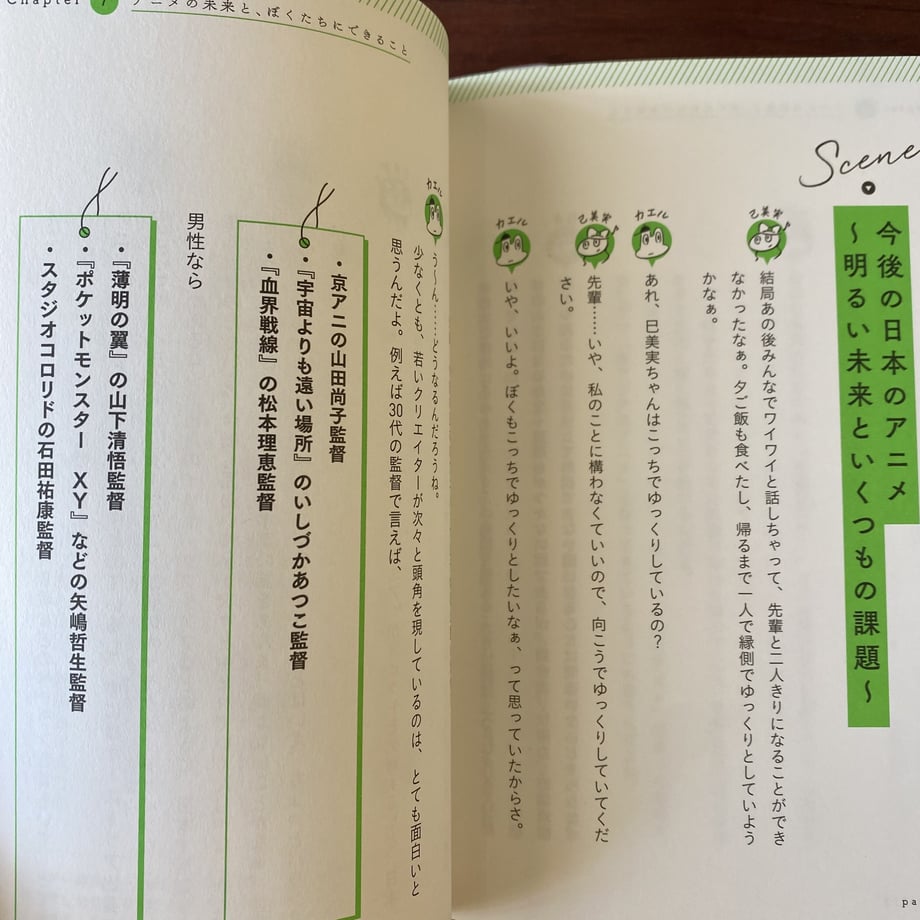 Scene
今後の日本のアニメ
～明るい未来といくつもの課題～
乙美実
結局あの後みんなでワイワイと話しちゃって、先輩と二人きりになることができ
なかったなぁ。夕ご飯も食べたし、帰るまで一人で縁側でゆっくりとしていよう
かなぁ。
カエル
あれ、巳美実ちゃんはこっちでゆっくりしているの？
乙美実
先輩……いや、私のことに構わなくていいので、向こうでゆっくりしていてくだ
さい。
カエル
いや、いいよ。ぼくもこっちでゆっくりとしたいなぁ、って思っていたからさ。
Chapter 7 アニメの未来と、ぼくたちにできること
カエル
う～ん……どうなるんだろうね。
少なくとも、若いクリエイターが次々と頭角を現しているのは、とても面白いと
思うんだよ。例えば30代の監督で言えば、
・京アニの山田尚子監督
・『宇宙よりも遠い場所』のいしづかあつこ監督
・『血界戦線』の松本理恵監督
男性なら
・『薄明の翼』の山下清悟監督
・『ポケットモンスター　XY』などの矢嶋哲生監督
・スタジオコロリドの石田祐康監督